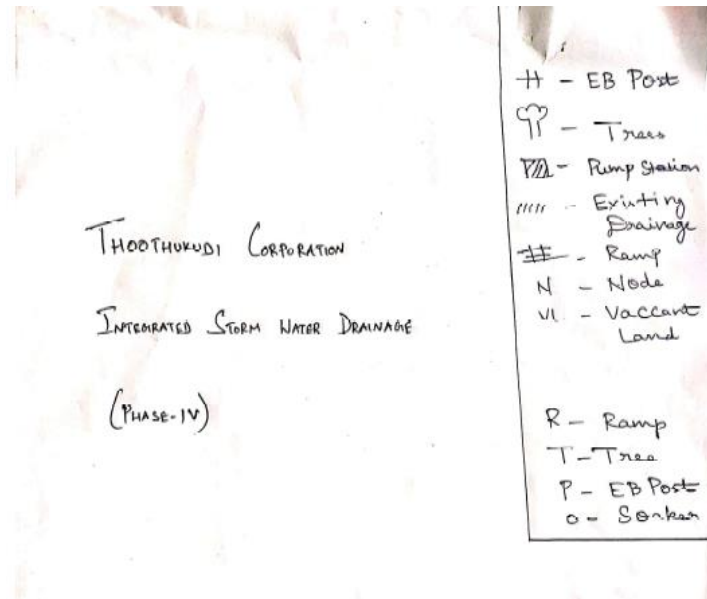 THOOTHUKUDI CORPORATION
INTEGRATED STORM WATER DRAINAGE
(PHASE-IV)
- EB Post
- Trees
- Pump Station
- Existing
Drainage
- Ramp
N - Node
VL - Vaccant
Land
R - Ramp
T - Tree
P - EB Post
o -